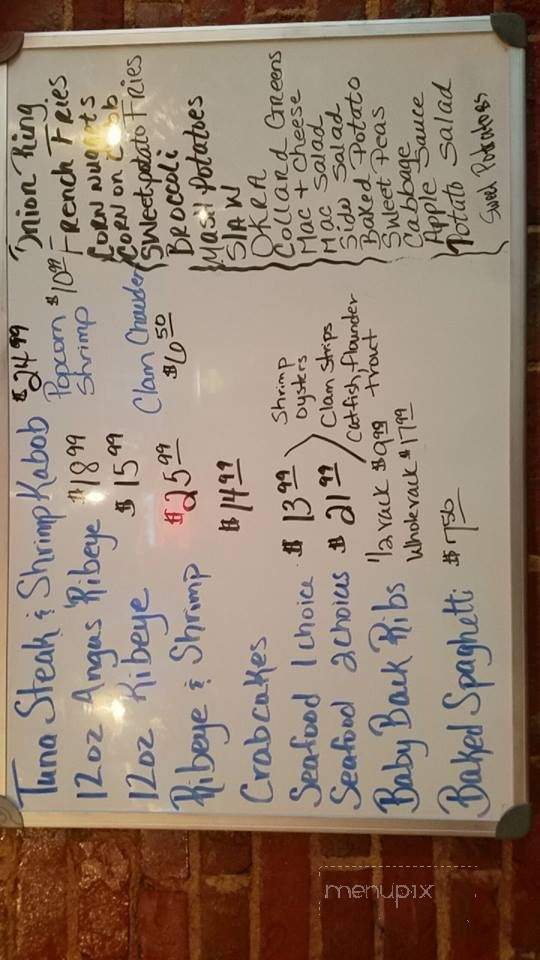 Tuna Steak & Shrimp Kabob $24.99
12oz Angus Ribeye $18.99
12oz Ribeye $15.99
Ribeye & Shrimp $25.99
Crabcakes $14.99
Seafood 1 choice $13.99
Seafood 2 choices $21.99
Shrimp
oysters
Clam strips
Catfish, flounder
trout
Baby Back Ribs
1/2 rack $9.99
Whole rack $17.99
Baked Spaghetti $7.50
Popcorn $10.99
Shrimp
Clam Chowder
$6.50
Onion Ring
French Fries
Corn Nuggets
Corn on Cobb
Sweet potato Fries
Broccoli
Mash Potatoes
Slaw
OKRA
Collard Greens
Mac + Cheese
Mac Salad
Side Salad
Baked Potato
Sweet Peas
Cabbage
Apple Sauce
Potato Salad
Sweet Potatoes
menupix